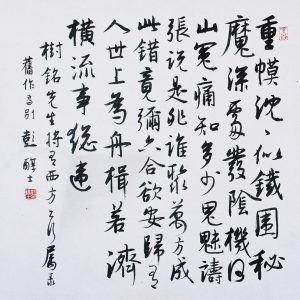 重幙沈沈似鐵圍秘
魔深處發陰機河
山冤痛知多少鬼魅譸
張說是非誰聚萬方成
此錯竟彌六合欲安歸
人世上為舟楫若濟
橫流事總違
樹銘先生將有西方之行屬录
舊作言別 彭醇士